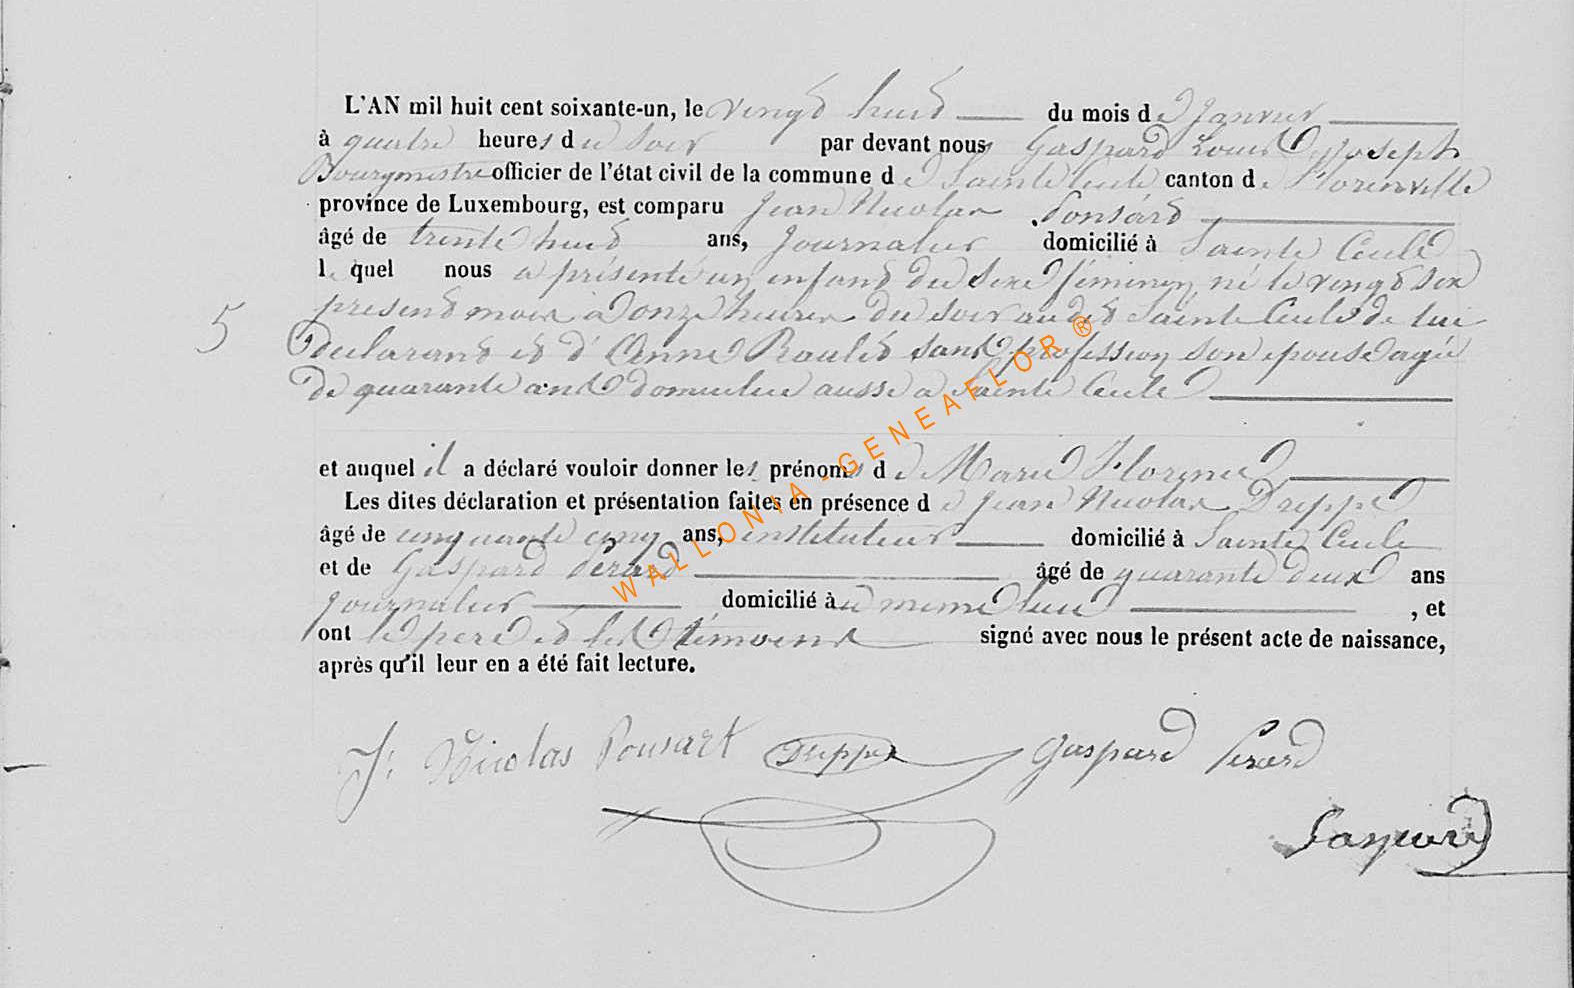 L'AN mil huit cent soixante-un, le vingt huit du mois de Janvier
à quatre heures du soir par devant nous Gaspard Louis Joseph
Bourgmestre officier de l'état civil de la commune de Sainte Cecile canton de Florenville
province de Luxembourg, est comparu Jean Nicolas Ponsard
âgé de trente huit ans, Journalier domicilié à Sainte Cecile
lequel nous a présenté un enfant du sexe féminin né le vingt six
present mois à onze heures du soir au dit Sainte Cecile de lui
declarant et d'Anne Roulis sans profession son epouse agée
de quarante ans domiciliée aussi a Sainte Cecile
5
et auquel il a déclaré vouloir donner les prénoms de Marie Florence
Les dites déclaration et présentation faites en présence de Jean Nicolas Dreppe
âgé de cinquante cinq ans, instituteur domicilié à Sainte Cecile
et de Gaspard Perard âgé de quarante deux ans
Journalier domicilié au meme lieu , et
ont le pere et les témoins signé avec nous le présent acte de naissance,
après qu'il leur en a été fait lecture.
J. Nicolas Ponsart Dreppe Gaspard Perard
Gaspard
WALLONIA-GENEAFLOR ®